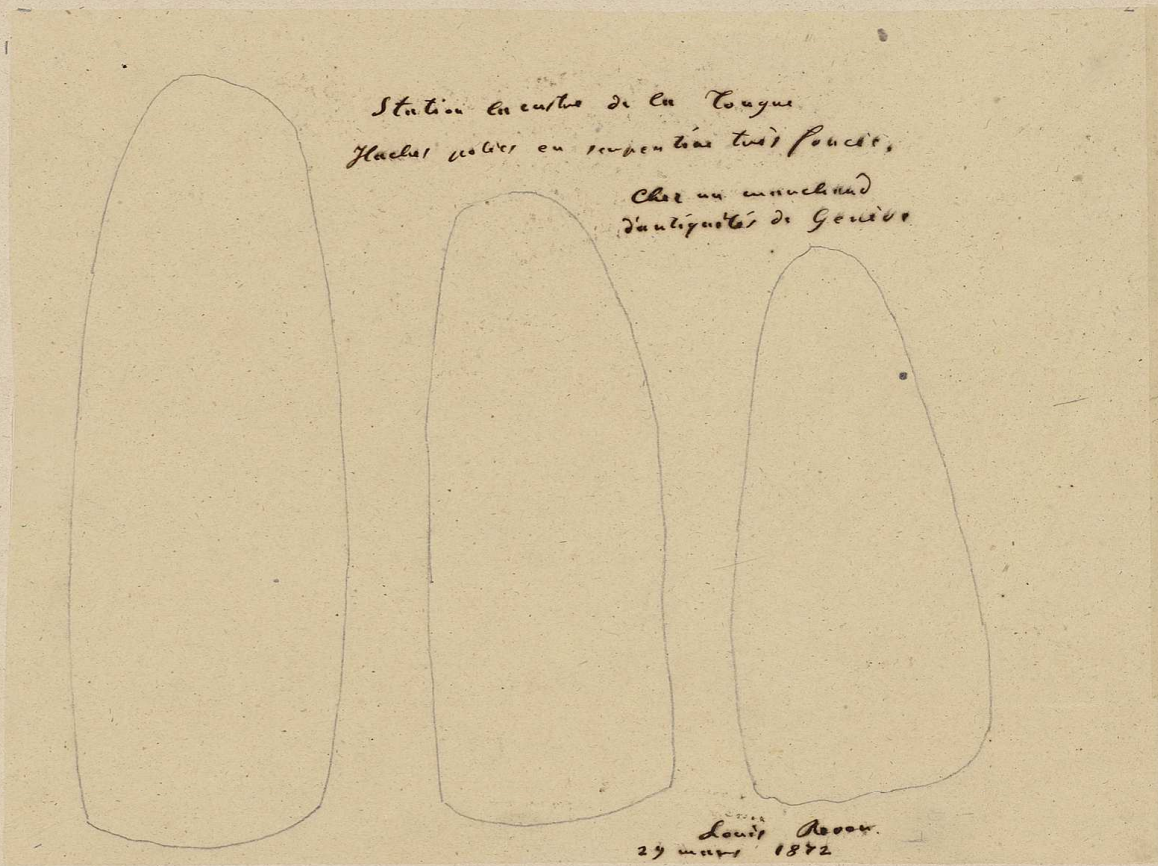 Station lacustre de la Tougue
Haches polies en serpentine très foncée.
Chez un marchand
d'antiquités de Genève
Louis Revon.
29 mars 1872